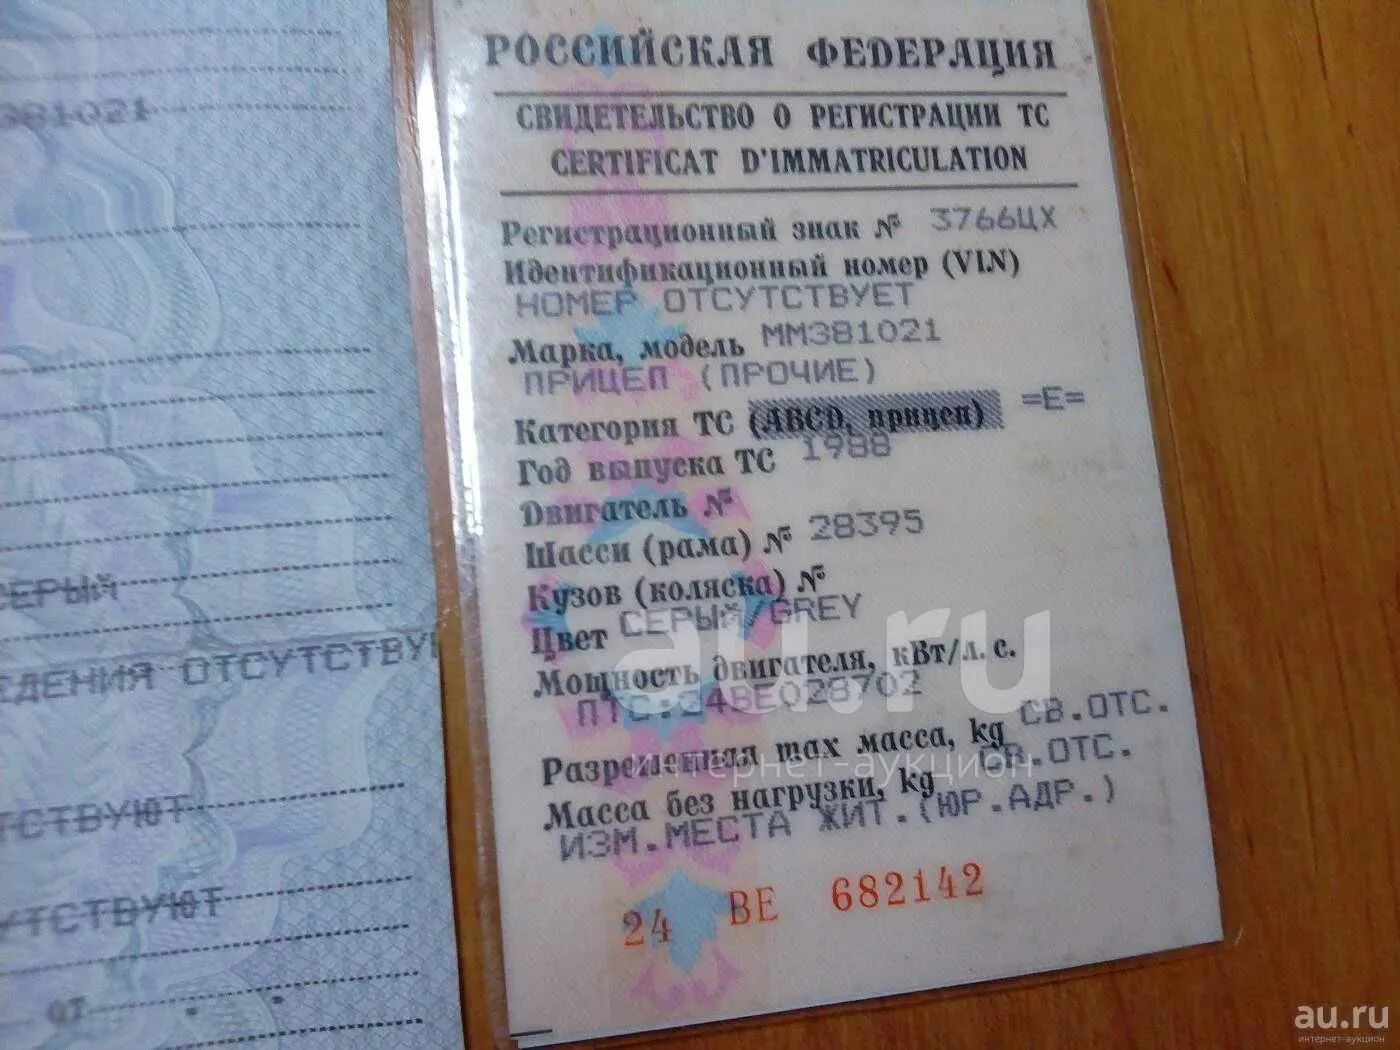 381021
СЕРЫЙ
ЕДЕНИЯ ОТСУТСТВУЮ
ТСТВУЮТ
УТСТВУЮТ
от
РОССИЙСКАЯ ФЕДЕРАЦИЯ
СВИДЕТЕЛЬСТВО О РЕГИСТРАЦИИ ТС
CERTIFICAT D'IMMATRICULATION
Регистрационный знак № 3766ЦХ
Идентификационный номер (VIN)
НОМЕР ОТСУТСТВУЕТ
Марка, модель ММ381021
ПРИЦЕП (ПРОЧИЕ)
Категория ТС (ABCD, прицеп) =E=
Год выпуска ТС 1988
Двигатель №
Шасси (рама) № 28395
Кузов (коляска) №
Цвет СЕРЫЙ/GREY
Мощность двигателя, кВт/л. с.
ПТС:24ВЕ028702
Разрешенная max масса, kg СВ.ОТС.
Масса без нагрузки, kg СВ.ОТС.
ИЗМ.МЕСТА ЖИТ.(ЮР.АДР.)
24 ВЕ 682142
au.ru
интернет-аукцион
au.ru
интернет-аукцион